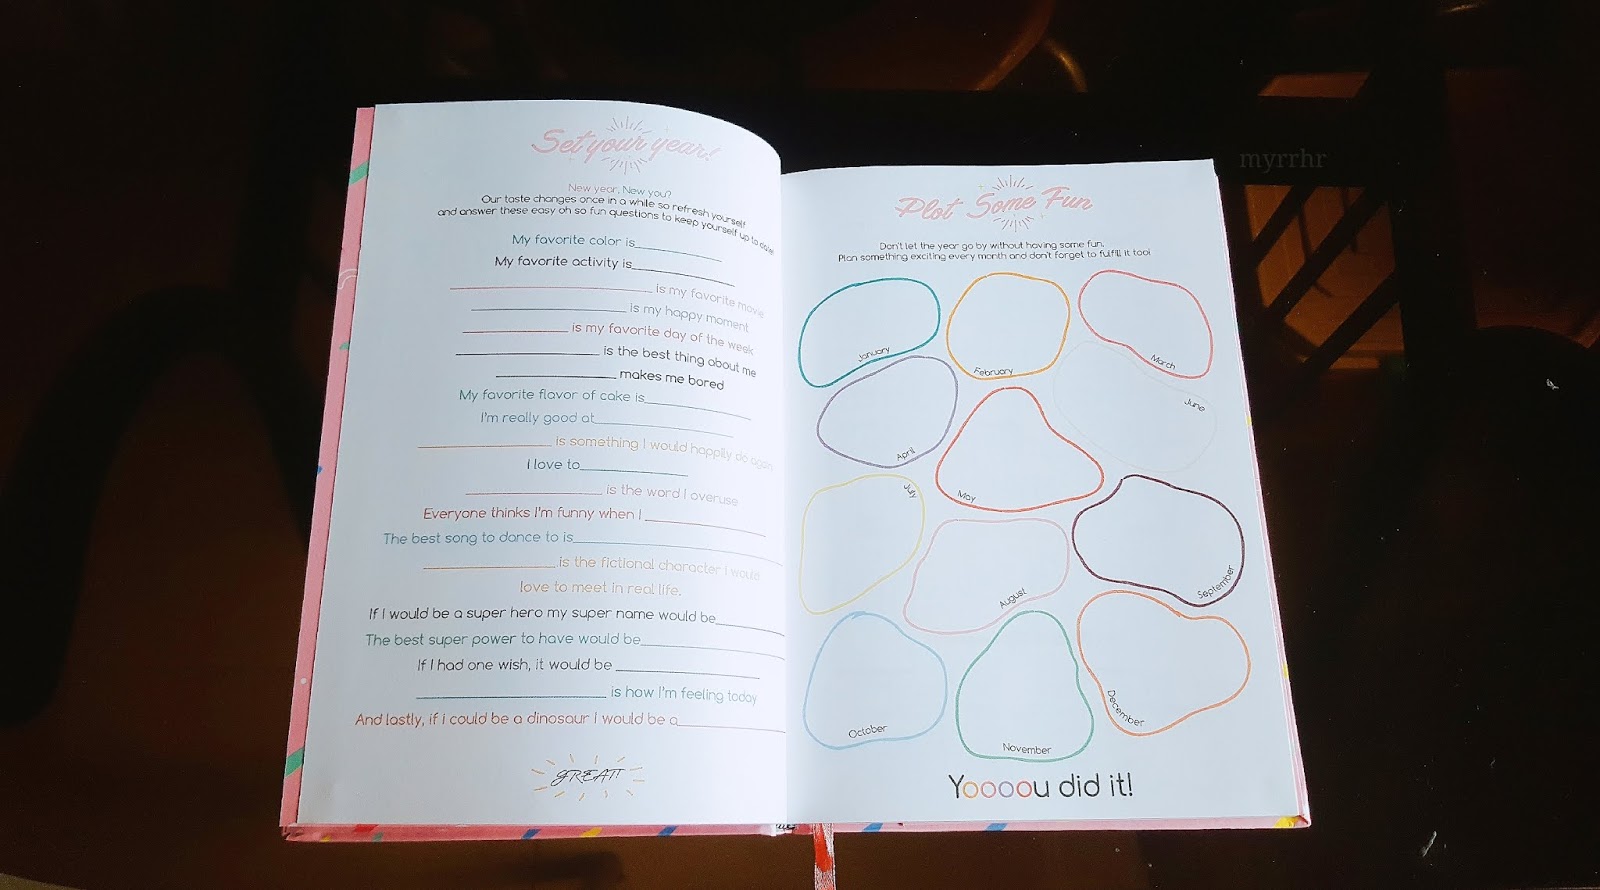 Set your year!
New year, New you?
Our taste changes once in a while so refresh yourself
and answer these easy oh so fun questions to keep yourself up to date!
My favorite color is____________
My favorite activity is____________
____________ is my favorite movie
____________ is my happy moment
____________ is my favorite day of the week
____________ is the best thing about me
____________ makes me bored
My favorite flavor of cake is____________
I'm really good at____________
____________ is something I would happily do again
I love to____________
____________ is the word I overuse
Everyone thinks I'm funny when I ____________
The best song to dance to is____________
____________ is the fictional character I would
love to meet in real life.
If I would be a super hero my super name would be____________
The best super power to have would be____________
If I had one wish, it would be ____________
____________ is how I'm feeling today
And lastly, if i could be a dinosaur I would be a____________
GREAT!
Plot Some Fun
Don't let the year go by without having some fun.
Plan something exciting every month and don't forget to fulfill it too!
January
February
March
April
May
June
July
August
September
October
November
December
Yoooou did it!
myrrhr